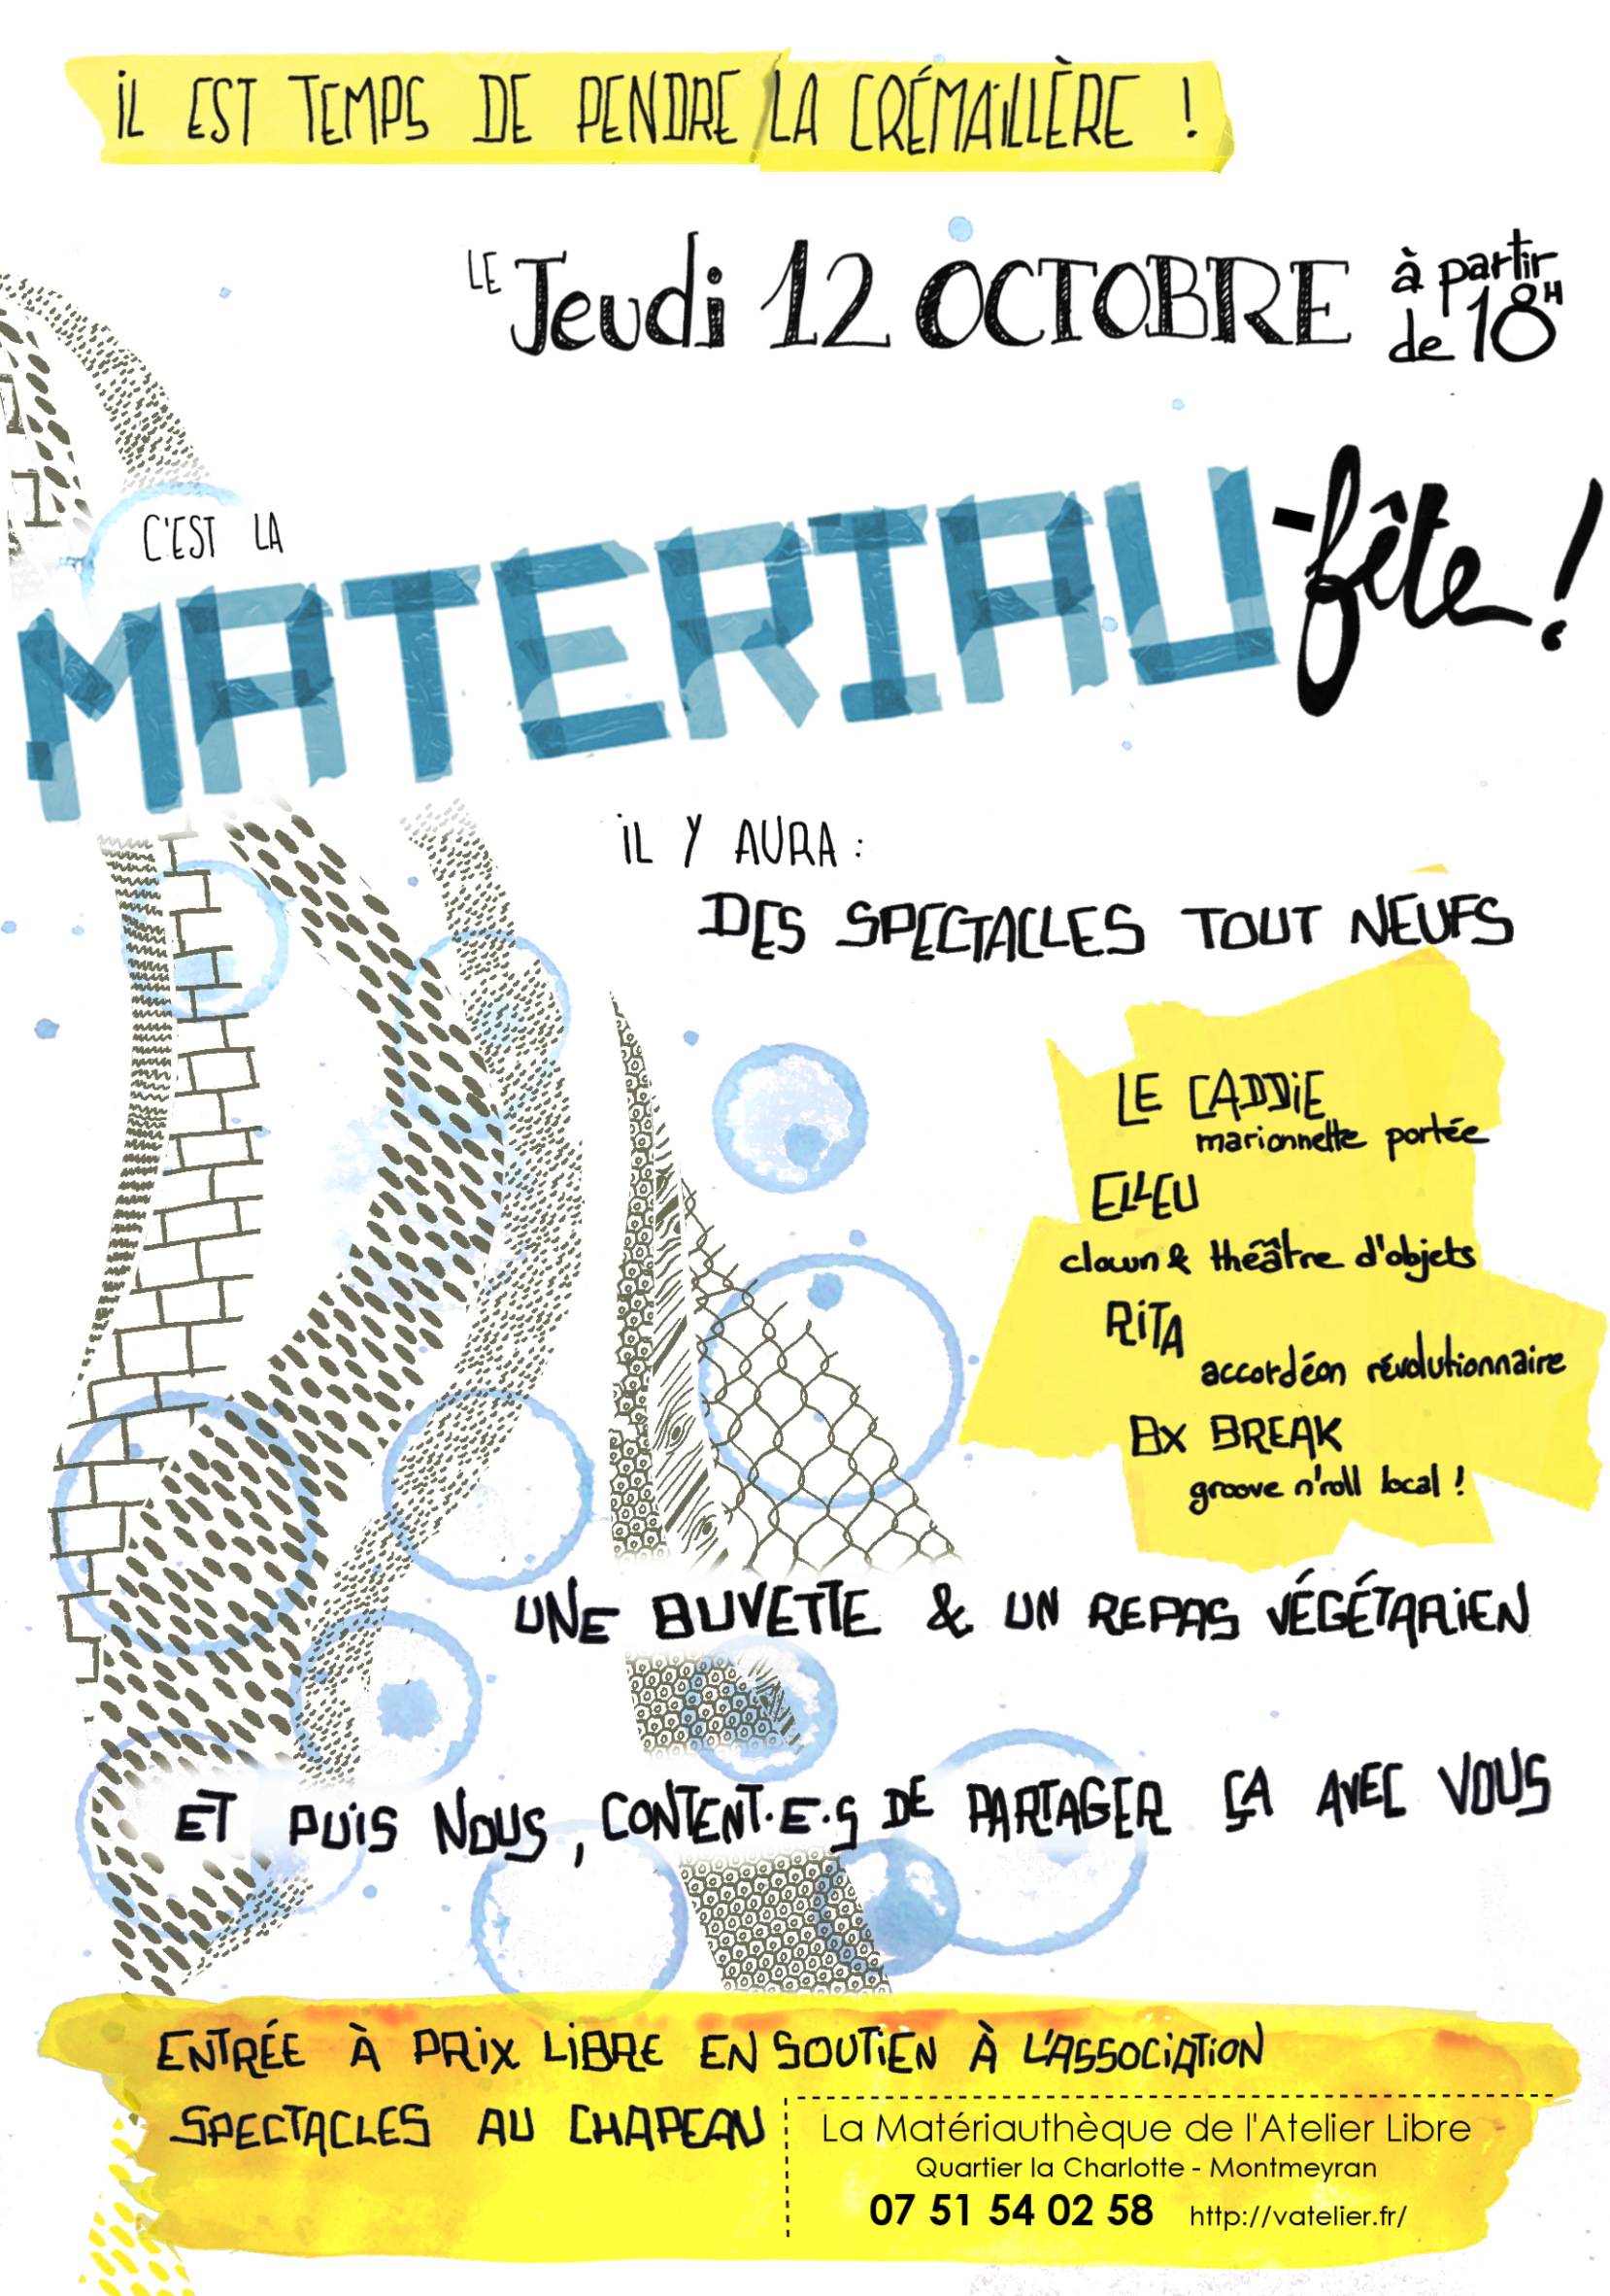 iL EST TEMPS DE PENDRE LA CRÉMAiLLÈRE !
LE Jeudi 12 OCTOBRE à partir de 18H
C'EST LA
MATERIAU-fête !
iL Y AURA :
DES SPECTACLES TOUT NEUFS
LE CADDiE
marionnette portée
ELLEU
clown & théâtre d'objets
RiTA
accordéon révolutionnaire
BX BREAK
groove n'roll local !
UNE BUVETTE & UN REPAS VÉGÉTARiEN
ET PUiS NOUS, CONTENT·E·S DE PARTAGER ÇA AVEC VOUS
ENTRÉE À PRiX LiBRE EN SOUTiEN À L'ASSOCiATiON
SPECTACLES AU CHAPEAU
La Matériauthèque de l'Atelier Libre
Quartier la Charlotte - Montmeyran
07 51 54 02 58 http://vatelier.fr/